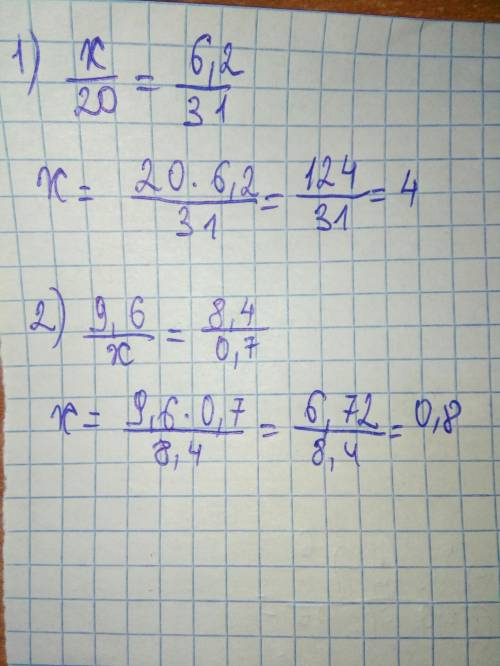 1) x/20 = 6,2/31
x = 20·6,2/31 = 124/31 = 4
2) 9,6/x = 8,4/0,7
x = 9,6·0,7/8,4 = 6,72/8,4 = 0,8